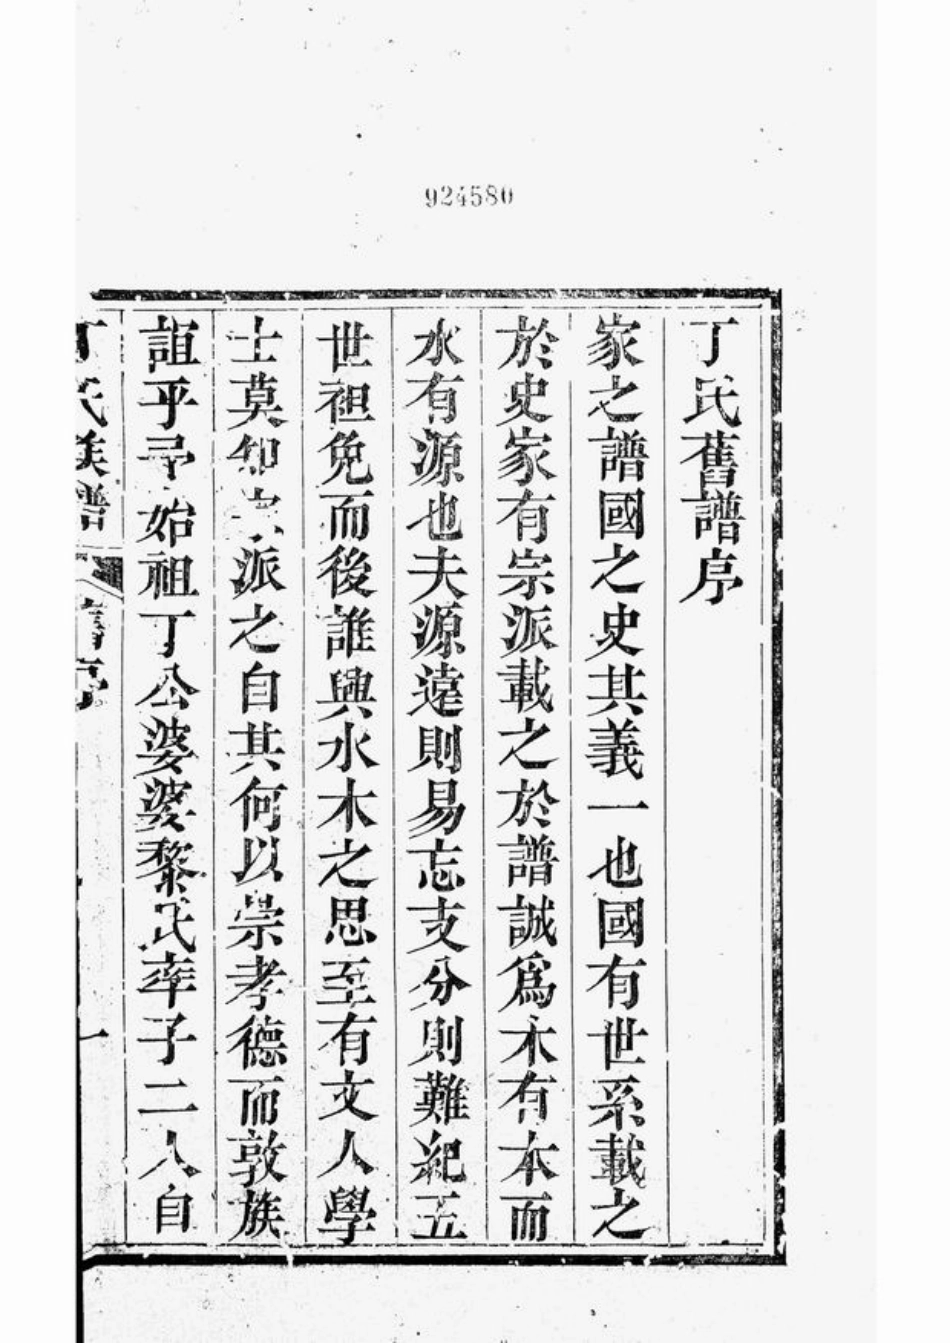 924580
丁氏舊譜序
家之譜國之史其義一也國有世系載之
於史家有宗派載之於譜誠爲木有本而
水有源也夫源遠則易忘支分則難紀五
世袒免而後誰興水木之思至有文人學
士莫知宗派之自其何以崇孝德而敦族
誼乎尋始祖丁公婆婆黎氏率子二人自
丁氏族譜 舊序 一